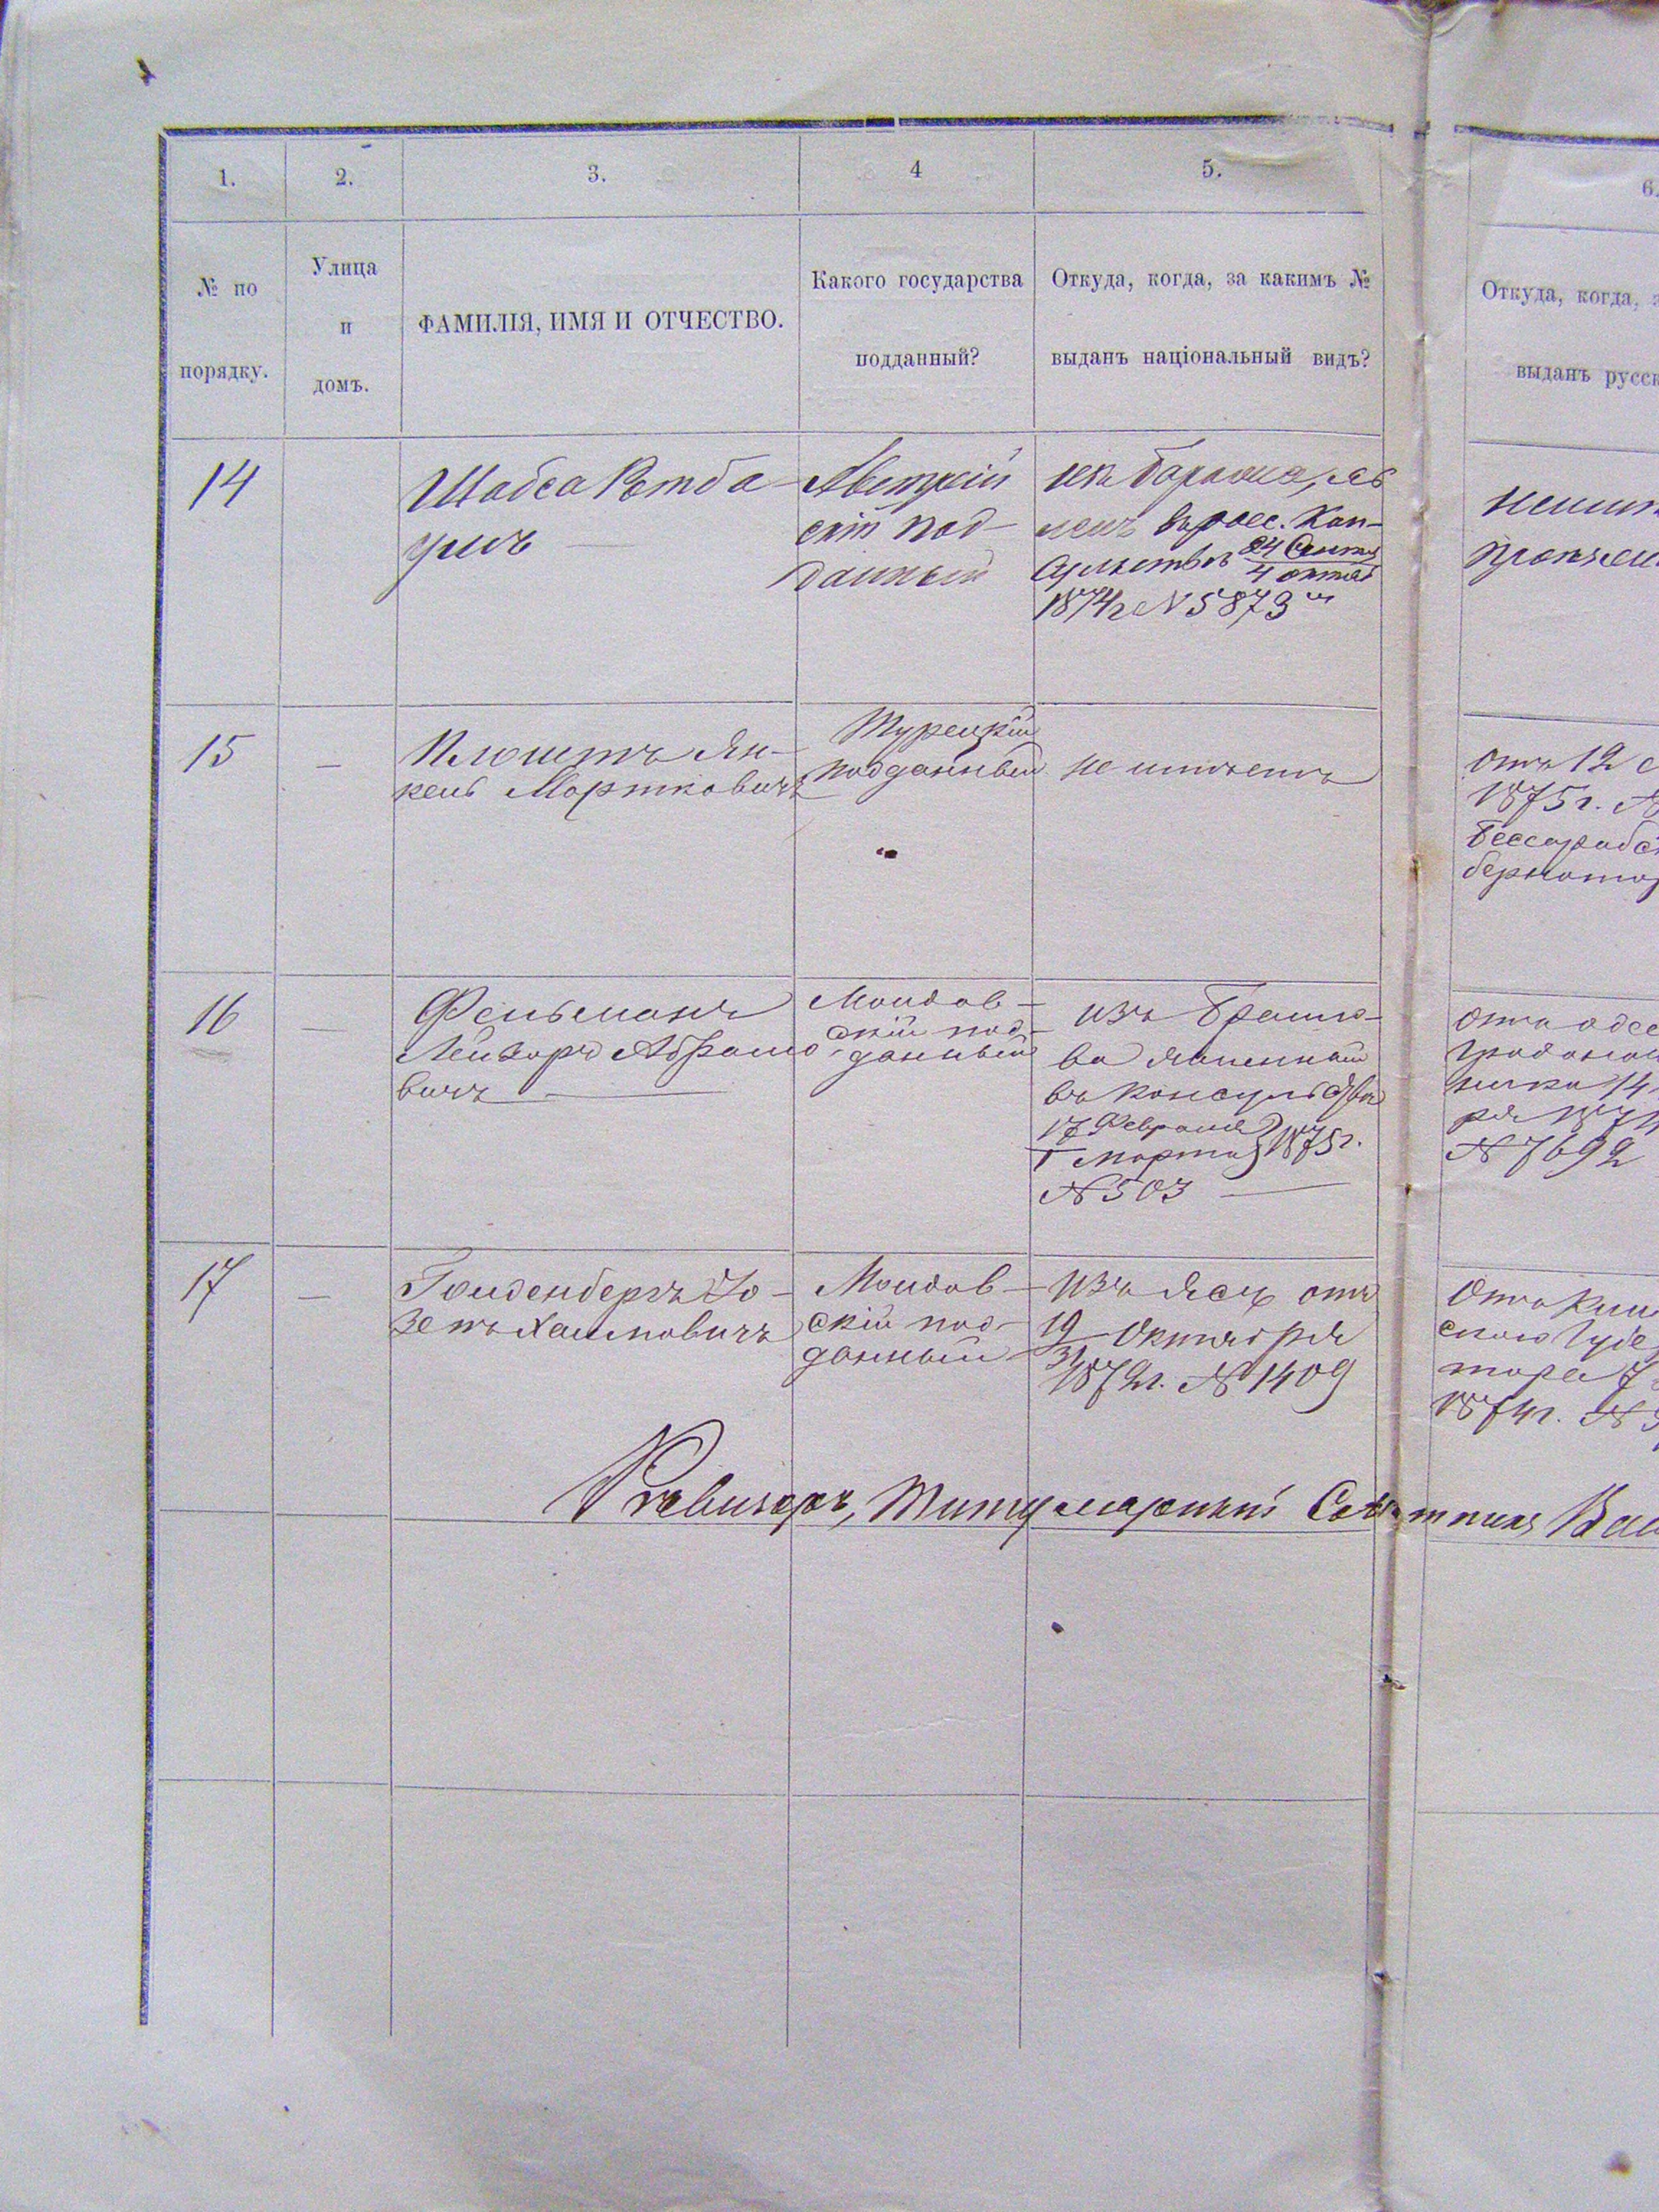 1. 2. 3. 4 5. 6.
№ по порядку.
Улица и домъ.
ФАМИЛІЯ, ИМЯ И ОТЧЕСТВО.
Какого государства подданный?
Откуда, когда, за какимъ № выданъ національный видъ?
Откуда, когда,
выданъ русск
14
Шабса Ротба
умъ
Австрій
скій под-
данный
въ росс. Кон-
сульствѣ 24 Сентя
4 октяб
1874г N 5873
15
—
Плоштъ Ян-
кель Мортковичъ
Турецкій
подданный
не имѣетъ
отъ 12
1875г. №
Бессарабск
бернатор
16
—
Фельманъ
Лейзоръ Абрамо
вичъ
Молдав-
скій под-
данный
изъ Браило-
ва явленный
въ консульствѣ
17 Февраля
1 Марта 1875г.
№ 503
отъ одес
градонач
ника 14
ря 1874
№ 7692
17
—
Голденбергъ Іо-
зепъ Хаимовичъ
Молдав-
скій под-
данный
изъ Ясъ отъ
19
31 Октября
1872г. № 1409
Отъ Киш
скаго Губе
тора 7
1874г. №
Ревизоръ, Титулярный Совѣтникъ